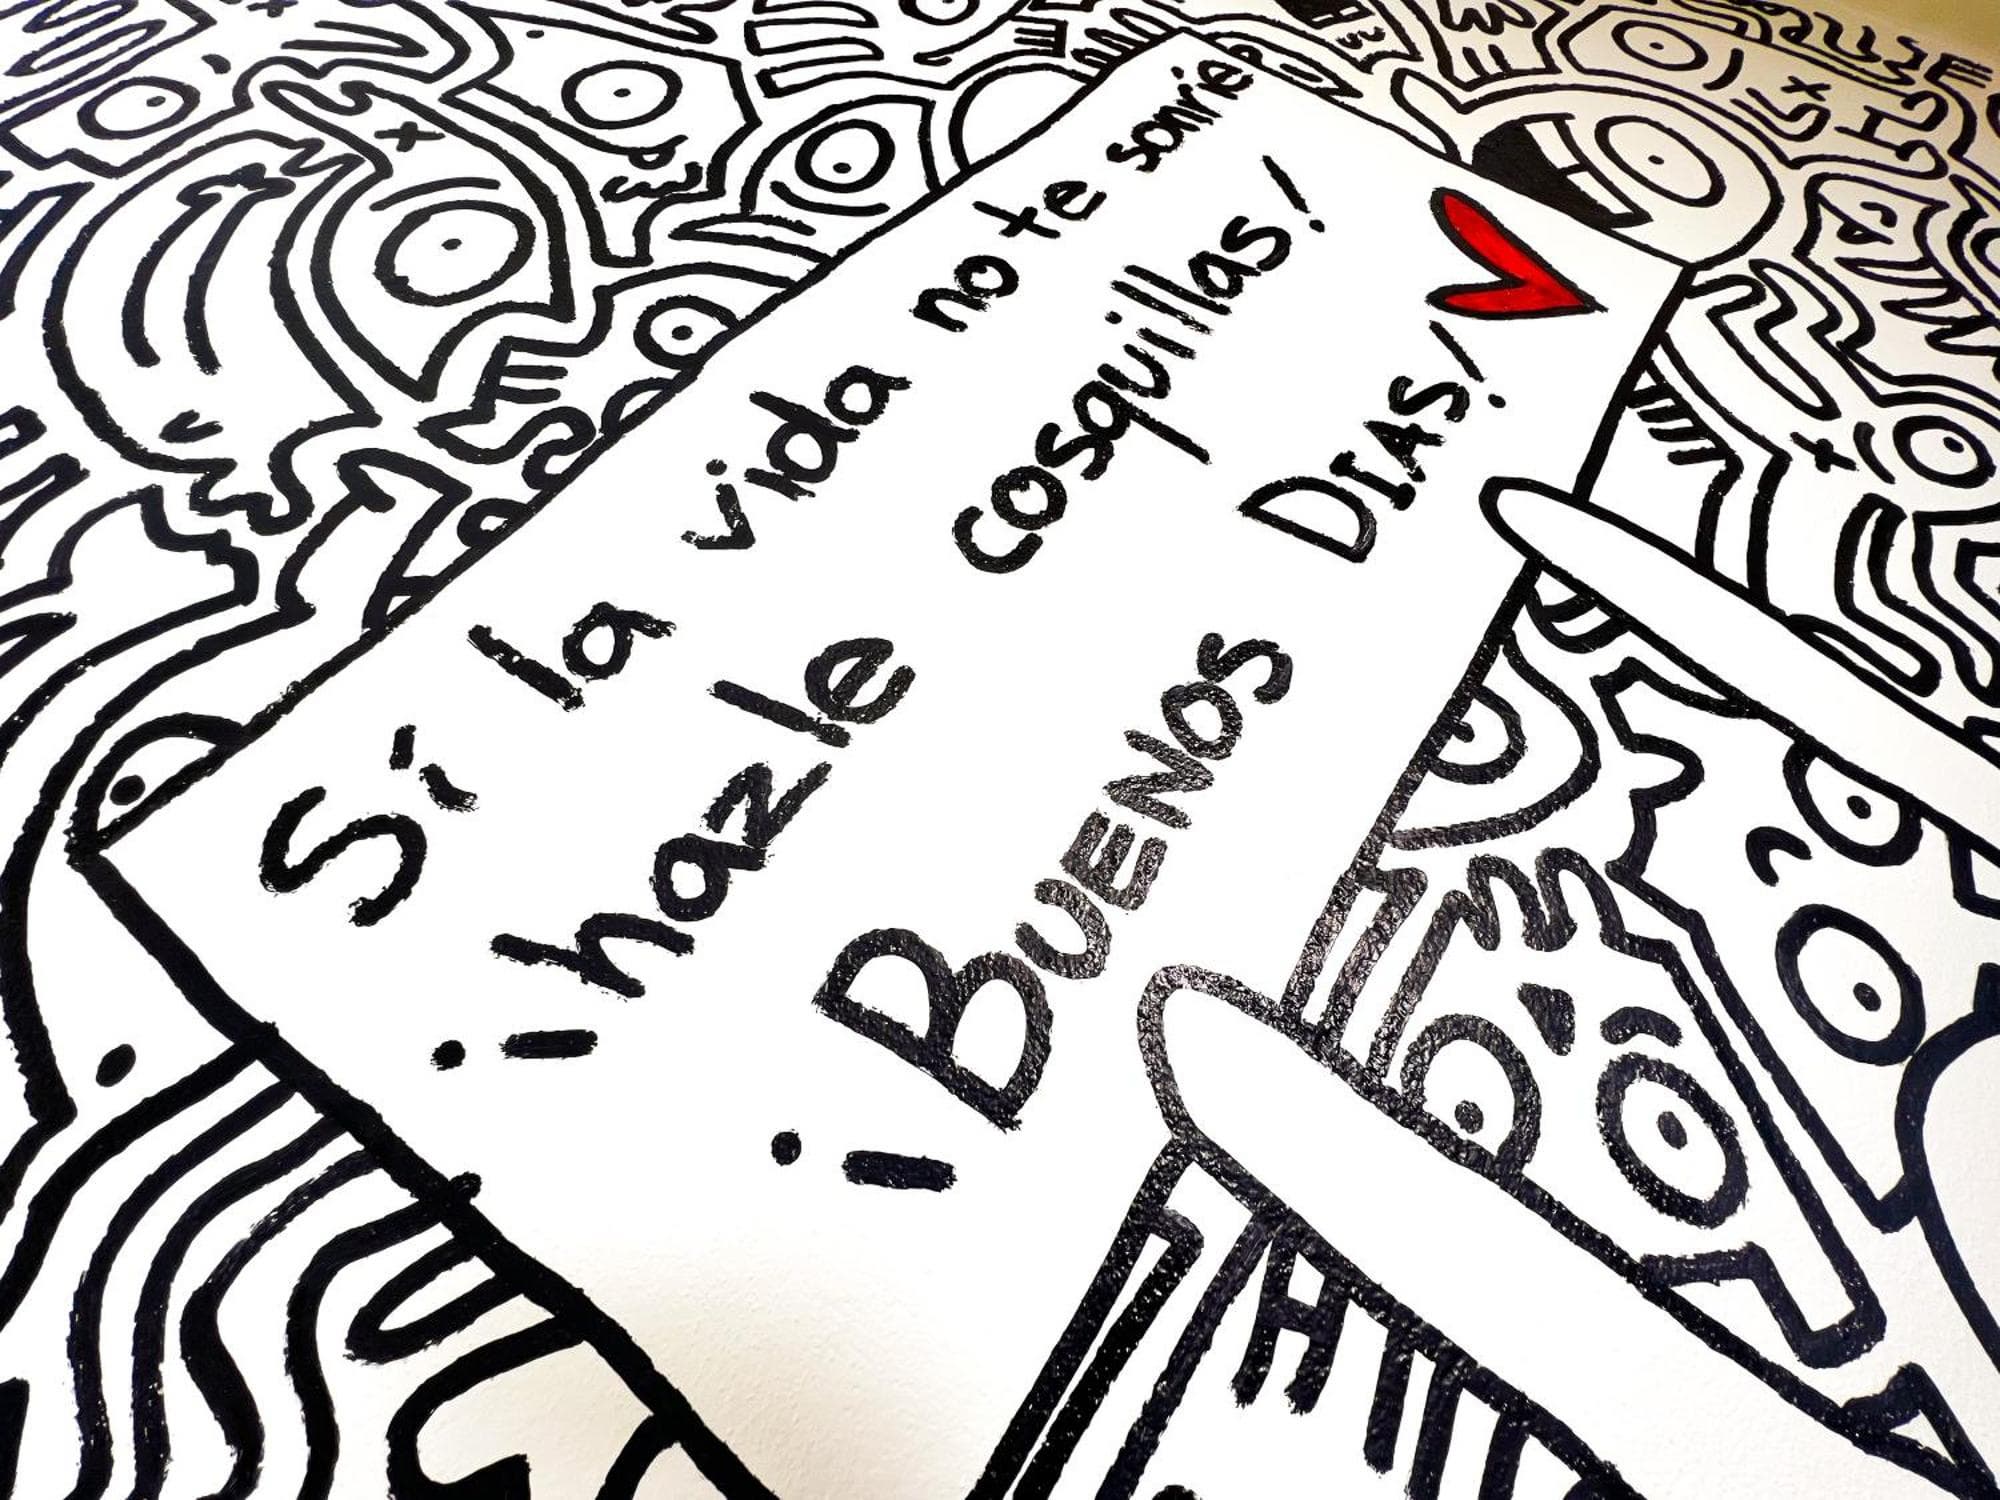 Si la vida no te sonríe
¡hazle cosquillas!
¡BUENOS DIAS!